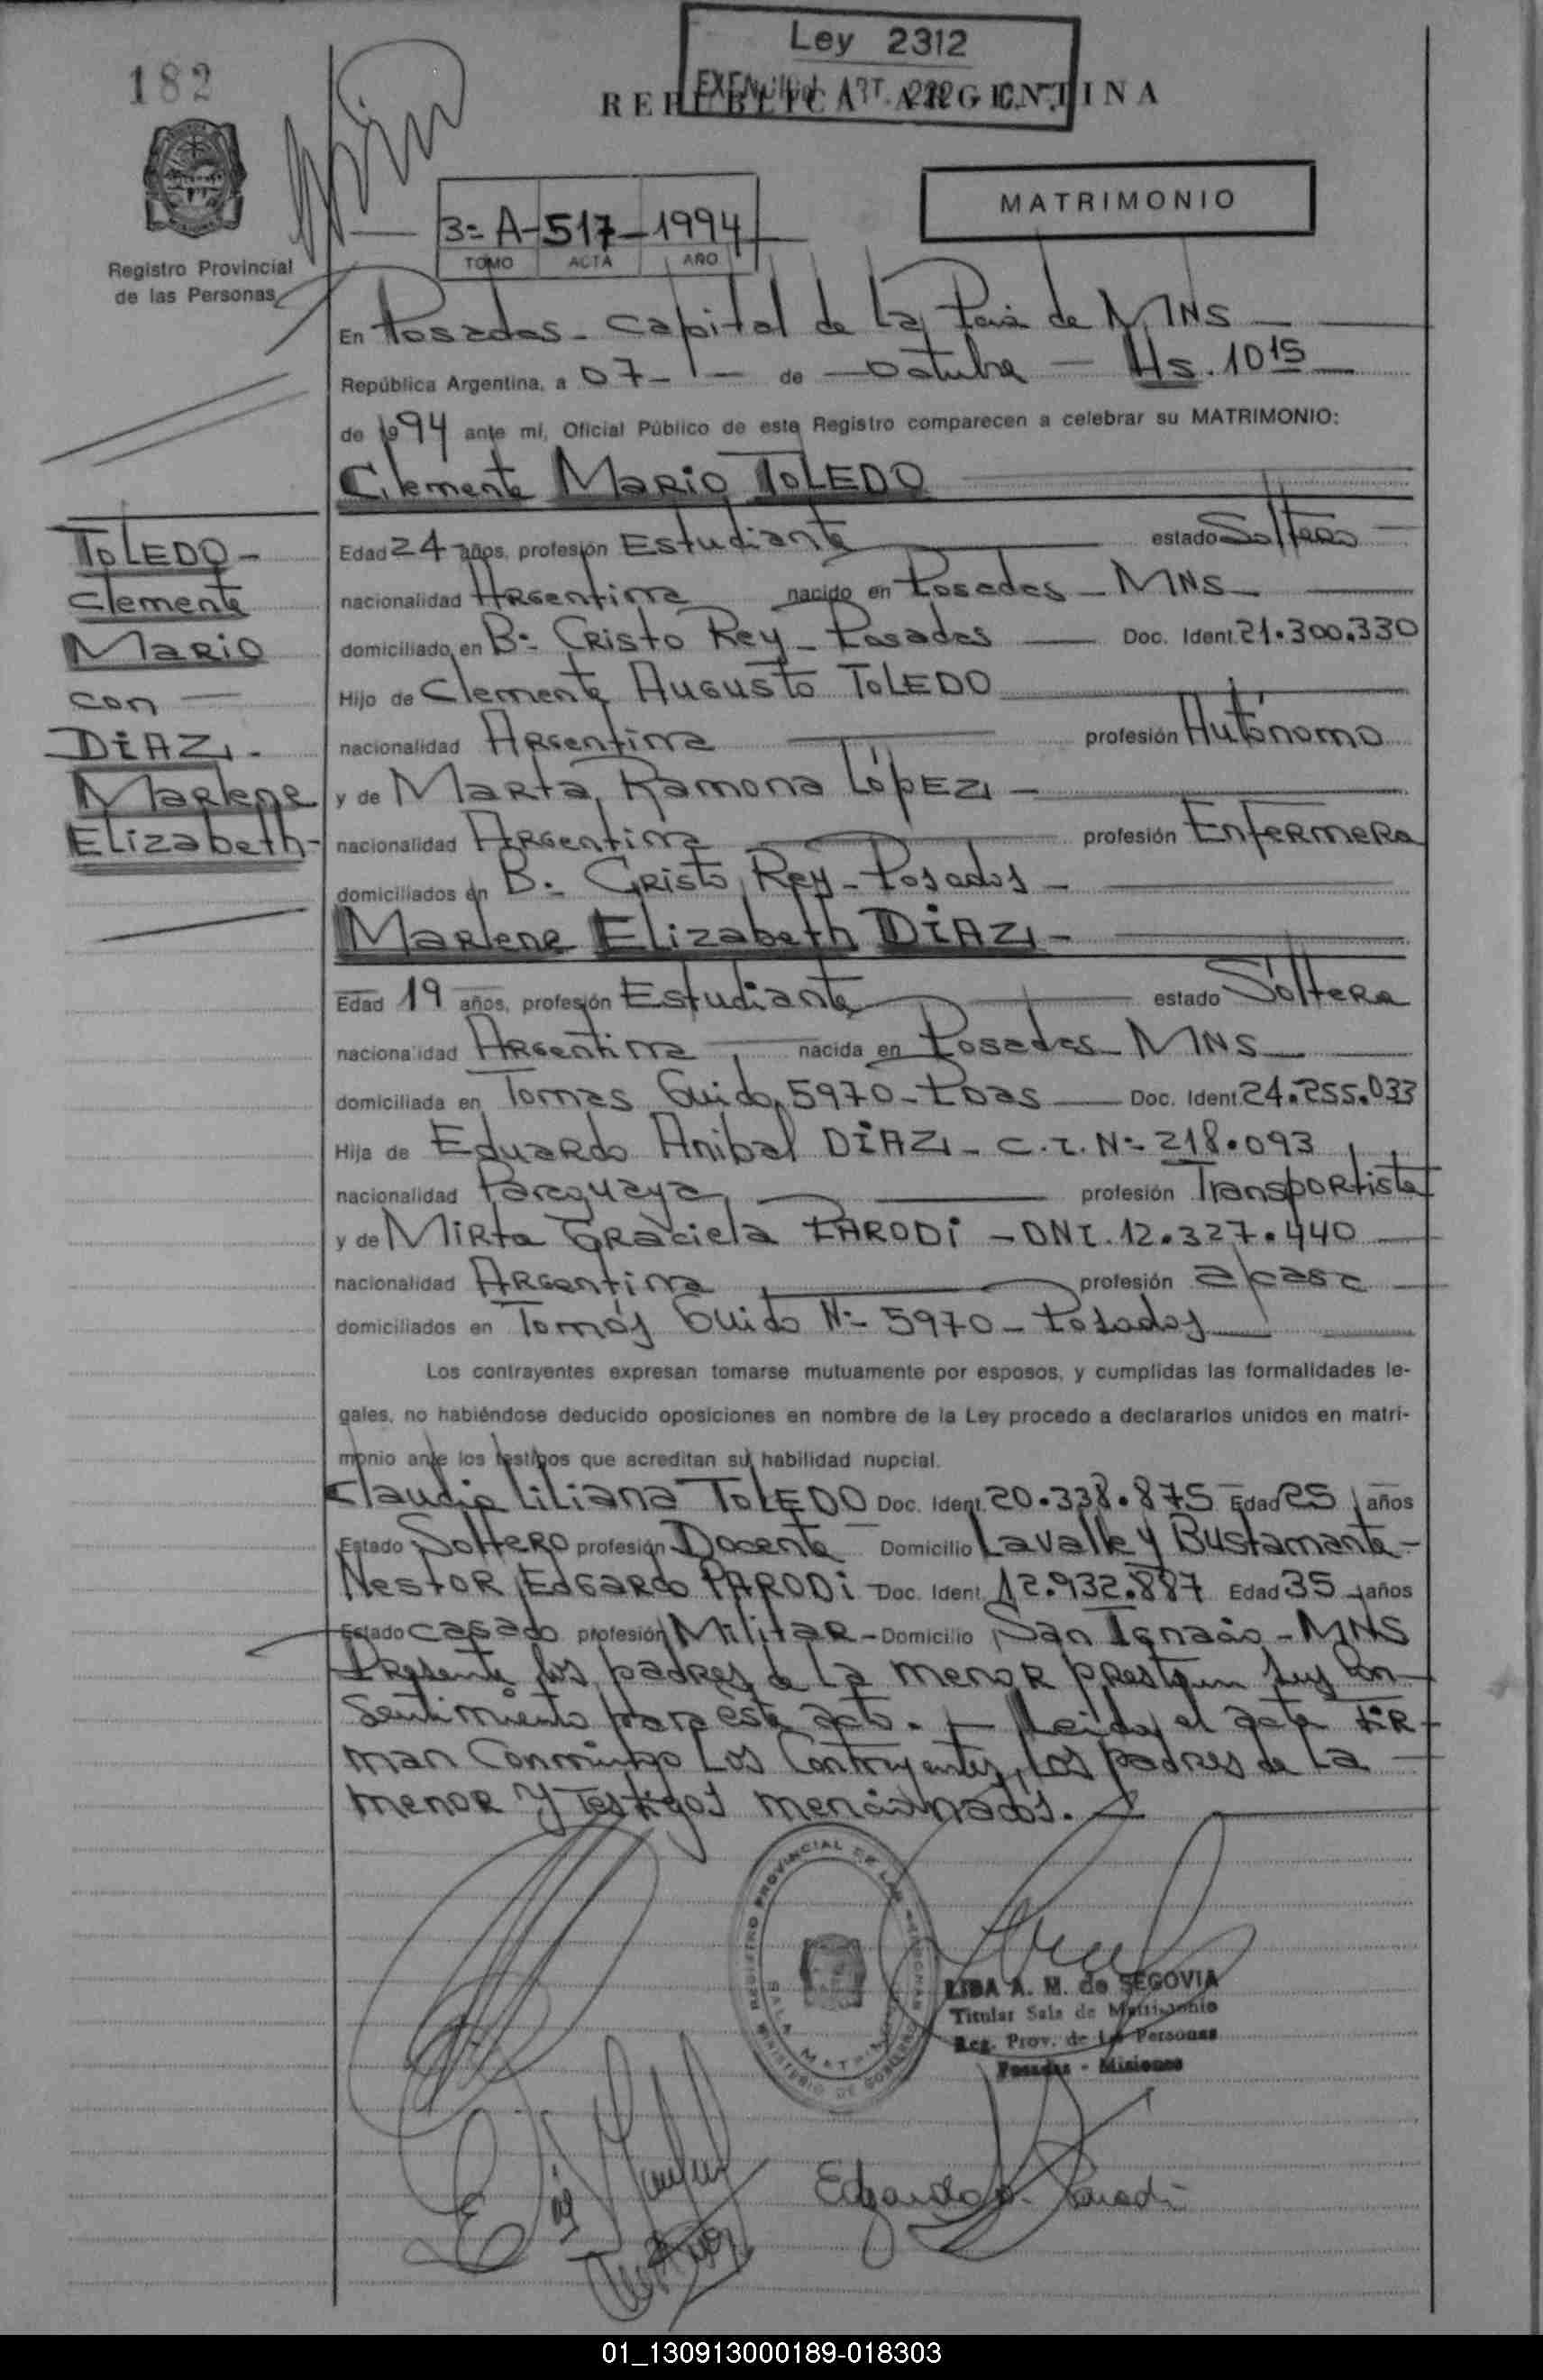 Ley 2312
182
REPUBLICA ARGENTINA
ART. 222 C.N.
MATRIMONIO
3= A - 517 - 1994
TOMO ACTA AÑO
Registro Provincial
de las Personas
En Posadas - Capital de La Pcia de MNS
República Argentina, a 07 - de Octubre - Hs. 10 15
de 1994 ante mí, Oficial Público de este Registro comparecen a celebrar su MATRIMONIO:
Clemente Mario TOLEDO
TOLEDO -
Clemente
Mario
con
DIAZ -
Marlene
Elizabeth -
Edad 24 años, profesión Estudiante estado Soltero
nacionalidad Argentina nacido en Posadas - MNS
domiciliado en B= Cristo Rey - Posadas Doc. Ident. 21.300.330
Hijo de Clemente Augusto TOLEDO
nacionalidad Argentina profesión Autónomo
y de Marta Ramona LópEZ -
nacionalidad Argentina profesión Enfermera
domiciliados en B= Cristo Rey - Posadas -
Marlene Elizabeth DIAZ -
Edad 19 años, profesión Estudiante estado Soltera
nacionalidad Argentina nacida en Posadas - MNS
domiciliada en Tomas Guido 5970 - Pdas Doc. Ident. 24.255.033
Hija de Eduardo Anibal DIAZ - C.I. N= 218.093
nacionalidad Paraguaya profesión Transportista
y de Mirta Graciela PARODI - DNI. 12.327.440
nacionalidad Argentina profesión a/casa
domiciliados en Tomás Guido N= 5970 - Posadas
Los contrayentes expresan tomarse mutuamente por esposos, y cumplidas las formalidades le-
gales, no habiéndose deducido oposiciones en nombre de la Ley procedo a declararlos unidos en matri-
monio ante los testigos que acreditan su habilidad nupcial.
Claudia Liliana TOLEDO Doc. Ident. 20.338.875 Edad 25 años
Estado Soltero profesión Docente Domicilio Lavalle y Bustamante -
Nestor Edgardo PARODI - Doc. Ident. 12.932.887 Edad 35 años
Estado casado profesión Militar - Domicilio San Ignacio - MNS
Presente los padres de La menor prestan sus con-
sentimiento para este acto. - Leida el acta FIR-
man Conmigo Los Contrayentes, los padres de La
menor y Testigos mencionados. -
REGISTRO PROVINCIAL DE LAS PERSONAS
MINISTERIO DE GOBIERNO
LIBA A. M. de SEGOVIA
Titular Sala de Matrimonio
Reg. Prov. de las Personas
Posadas - Misiones
Edgardo Parodi
01_130913000189-018303